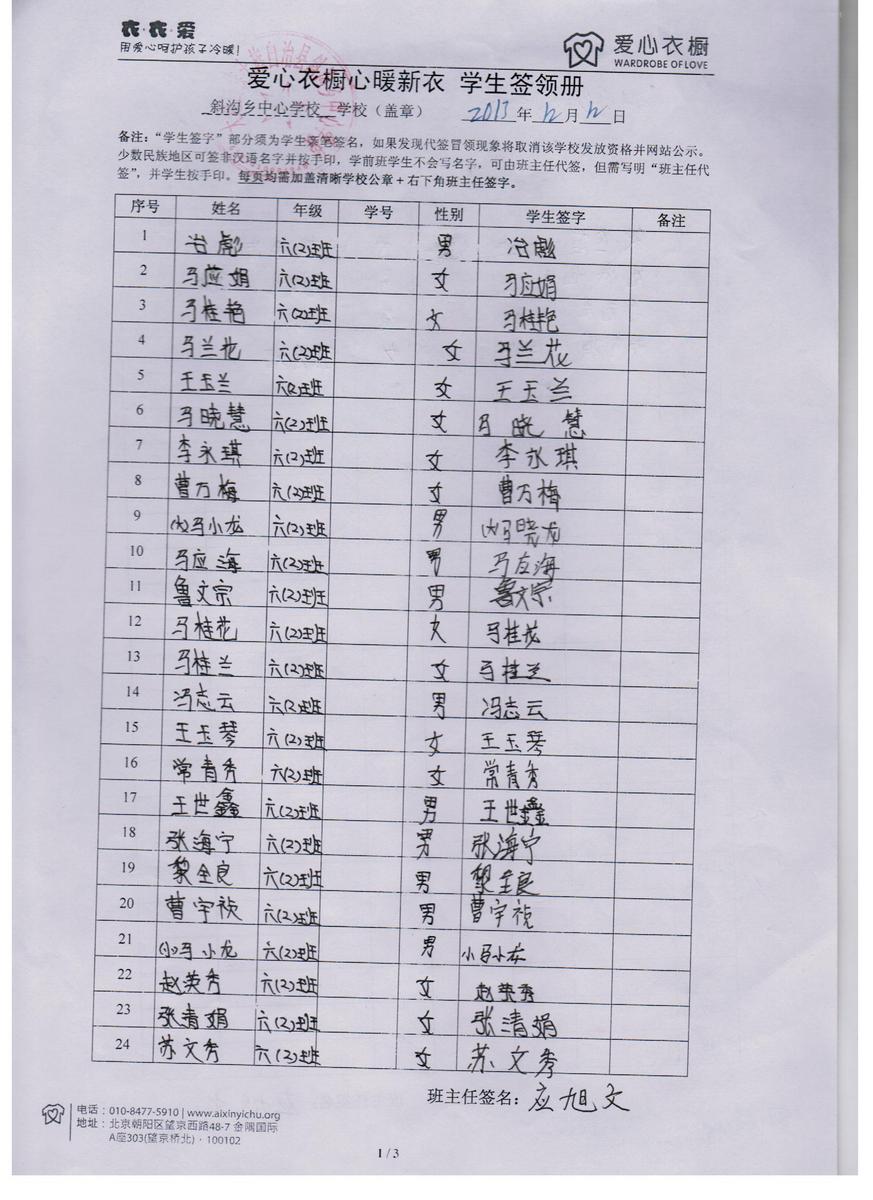 衣·衣·爱
用爱心呵护孩子冷暖!
爱心衣橱
WARDROBE OF LOVE
爱心衣橱心暖新衣 学生签领册
斜沟乡中心学校 学校（盖章） 2013年12月12日
备注：“学生签字”部分须为学生亲笔签名，如果发现代签冒领现象将取消该学校发放资格并网站公示。
少数民族地区可签非汉语名字并按手印，学前班学生不会写名字，可由班主任代签，但需写明“班主任代
签”，并学生按手印。每页均需加盖清晰学校公章+右下角班主任签字。
序号 姓名 年级 学号 性别 学生签字 备注
1 冶彪 六(2)班 男 冶彪
2 马应娟 六(2)班 女 马应娟
3 马桂艳 六(2)班 女 马桂艳
4 马兰花 六(2)班 女 马兰花
5 王玉兰 六(2)班 女 王玉兰
6 马晓慧 六(2)班 女 马晓慧
7 李永琪 六(2)班 女 李永琪
8 曹万梅 六(2)班 女 曹万梅
9 (大)马小龙 六(2)班 男 马晓龙
10 马应海 六(2)班 男 马应海
11 鲁文宗 六(2)班 男 鲁文宗
12 马桂花 六(2)班 女 马桂花
13 马桂兰 六(2)班 女 马桂兰
14 冯志云 六(2)班 男 冯志云
15 王玉琴 六(2)班 女 王玉琴
16 常青秀 六(2)班 女 常青秀
17 王世鑫 六(2)班 男 王世鑫
18 张海宁 六(2)班 男 张海宁
19 黎全良 六(2)班 男 黎全良
20 曹宇祯 六(2)班 男 曹宇祯
21 (小)马小龙 六(2)班 男 小马小龙
22 赵英秀 六(2)班 女 赵英秀
23 张清娟 六(2)班 女 张清娟
24 苏文秀 六(2)班 女 苏文秀
班主任签名：应旭文
电话：010-8477-5910 | www.aixinyichu.org
地址：北京朝阳区望京西路48-7 金隅国际
A座303(望京桥北)·100102
1 / 3